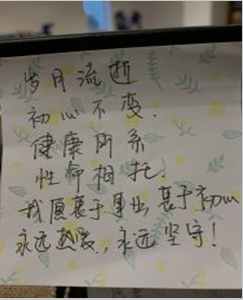 岁月流逝
初心不变.
健康所系
性命相托.
我愿基于事业,基于初心
永远热爱,永远坚守!